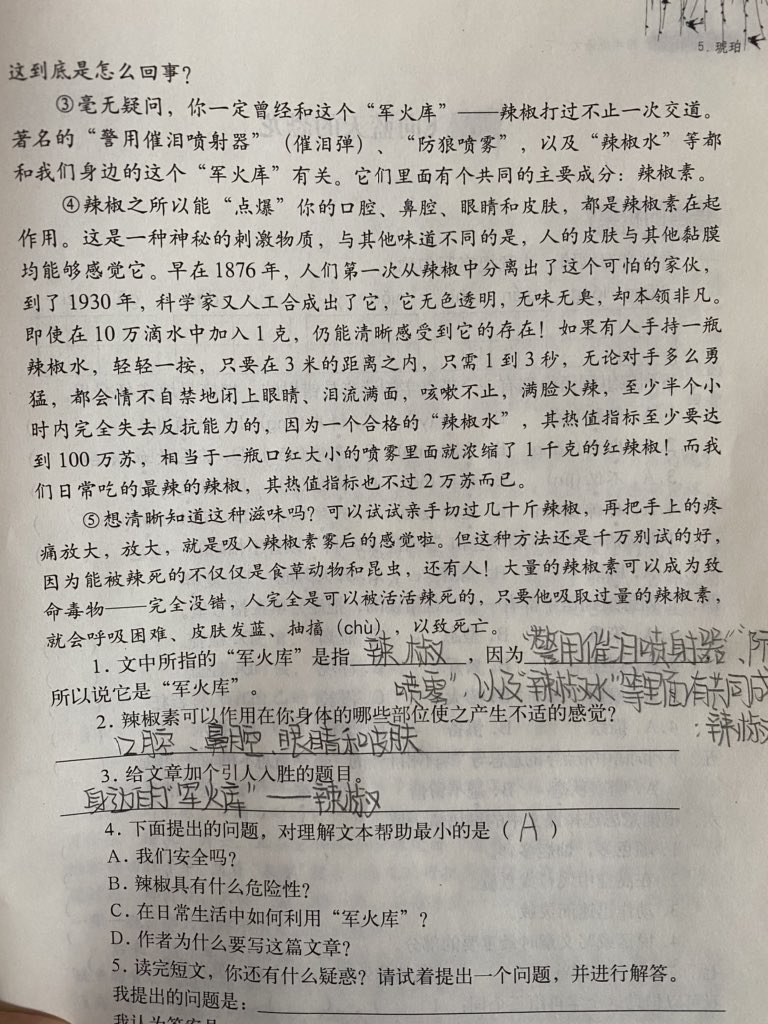 5. 琥珀
这到底是怎么回事？
③毫无疑问，你一定曾经和这个“军火库”——辣椒打过不止一次交道。
著名的“警用催泪喷射器”（催泪弹）、“防狼喷雾”，以及“辣椒水”等都
和我们身边的这个“军火库”有关。它们里面有个共同的主要成分：辣椒素。
④辣椒之所以能“点爆”你的口腔、鼻腔、眼睛和皮肤，都是辣椒素在起
作用。这是一种神秘的刺激物质，与其他味道不同的是，人的皮肤与其他黏膜
均能够感觉它。早在 1876 年，人们第一次从辣椒中分离出了这个可怕的家伙，
到了 1930 年，科学家又人工合成出了它，它无色透明，无味无臭，却本领非凡。
即使在 10 万滴水中加入 1 克，仍能清晰感受到它的存在！如果有人手持一瓶
辣椒水，轻轻一按，只要在 3 米的距离之内，只需 1 到 3 秒，无论对手多么勇
猛，都会情不自禁地闭上眼睛、泪流满面，咳嗽不止，满脸火辣，至少半个小
时内完全失去反抗能力的，因为一个合格的“辣椒水”，其热值指标至少要达
到 100 万苏，相当于一瓶口红大小的喷雾里面就浓缩了 1 千克的红辣椒！而我
们日常吃的最辣的辣椒，其热值指标也不过 2 万苏而已。
⑤想清晰知道这种滋味吗？可以试试亲手切过几十斤辣椒，再把手上的疼
痛放大，放大，就是吸入辣椒素雾后的感觉啦。但这种方法还是千万别试的好，
因为能被辣死的不仅仅是食草动物和昆虫，还有人！大量的辣椒素可以成为致
命毒物——完全没错，人完全是可以被活活辣死的，只要他吸取过量的辣椒素，
就会呼吸困难、皮肤发蓝、抽搐（chù），以致死亡。
1. 文中所指的“军火库”是指 辣椒 ，因为 “警用催泪喷射器”、防
所以说它是“军火库”。 喷雾”，以及“辣椒水”等里面有共同成
2. 辣椒素可以作用在你身体的哪些部位使之产生不适的感觉？ ：辣椒
口腔、鼻腔、眼睛和皮肤
3. 给文章加个引人入胜的题目。
身边的“军火库”——辣椒
4. 下面提出的问题，对理解文本帮助最小的是（ A ）
A. 我们安全吗？
B. 辣椒具有什么危险性？
C. 在日常生活中如何利用“军火库”？
D. 作者为什么要写这篇文章？
5. 读完短文，你还有什么疑惑？请试着提出一个问题，并进行解答。
我提出的问题是：